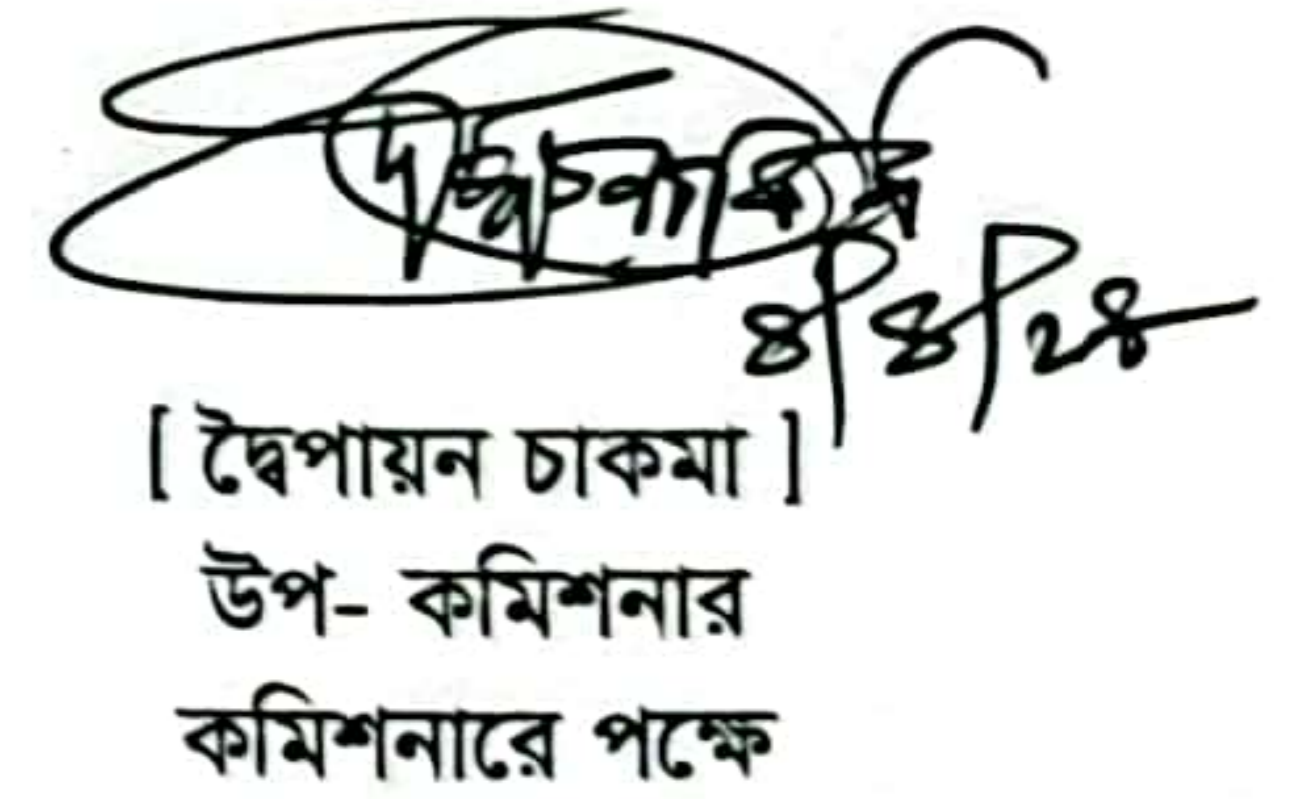 ৪/৪/২৪
[ দ্বৈপায়ন চাকমা ]
উপ- কমিশনার
কমিশনারে পক্ষে